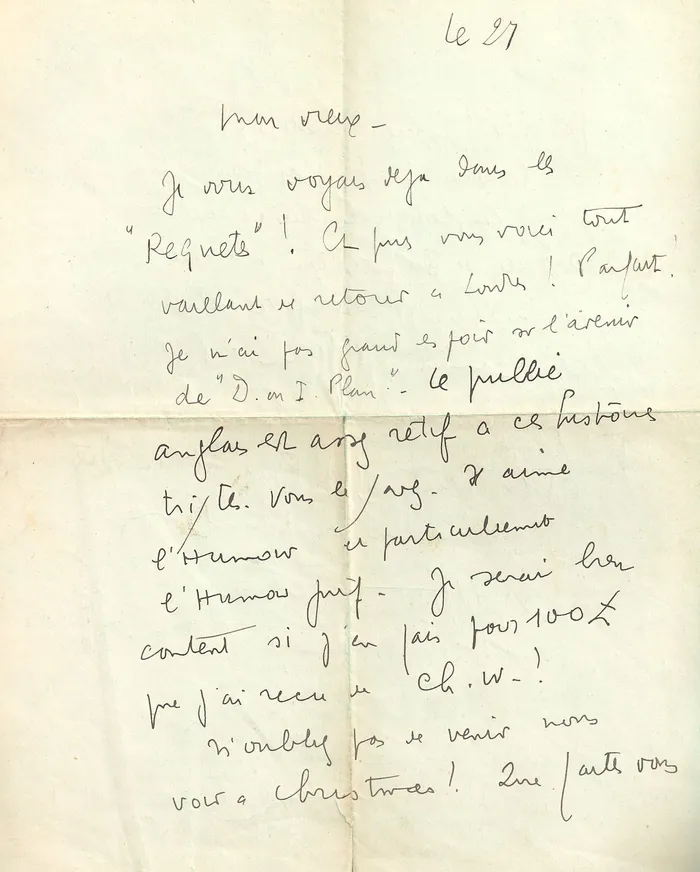 le 27
Mon vieux -
Je vous voyais deja dans les
"Regrets"! Et puis vous voici tout
vaillant de retour a Londres! Parfait!
Je n'ai pas grand espoir sur l'avenir
de "D. on I. Plan." - Le public
anglais est assez rétif a ces histoires
tristes. Vous le savez. Il aime
l'Humour et particulierement
l'Humour juif - Je serai bien
content si j'en fais pour 100 £
que j'ai recu de Ch. W. - !
N'oubliez pas de venir nous
voir a Christmas! Que faites vous